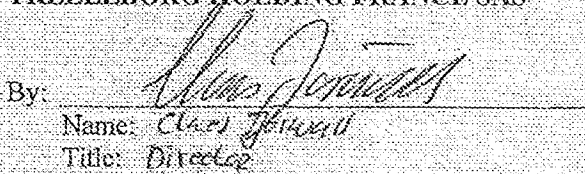 TRELLEBORG HOLDING FRANCE SAS
By:
Name: Claes
Title: Director